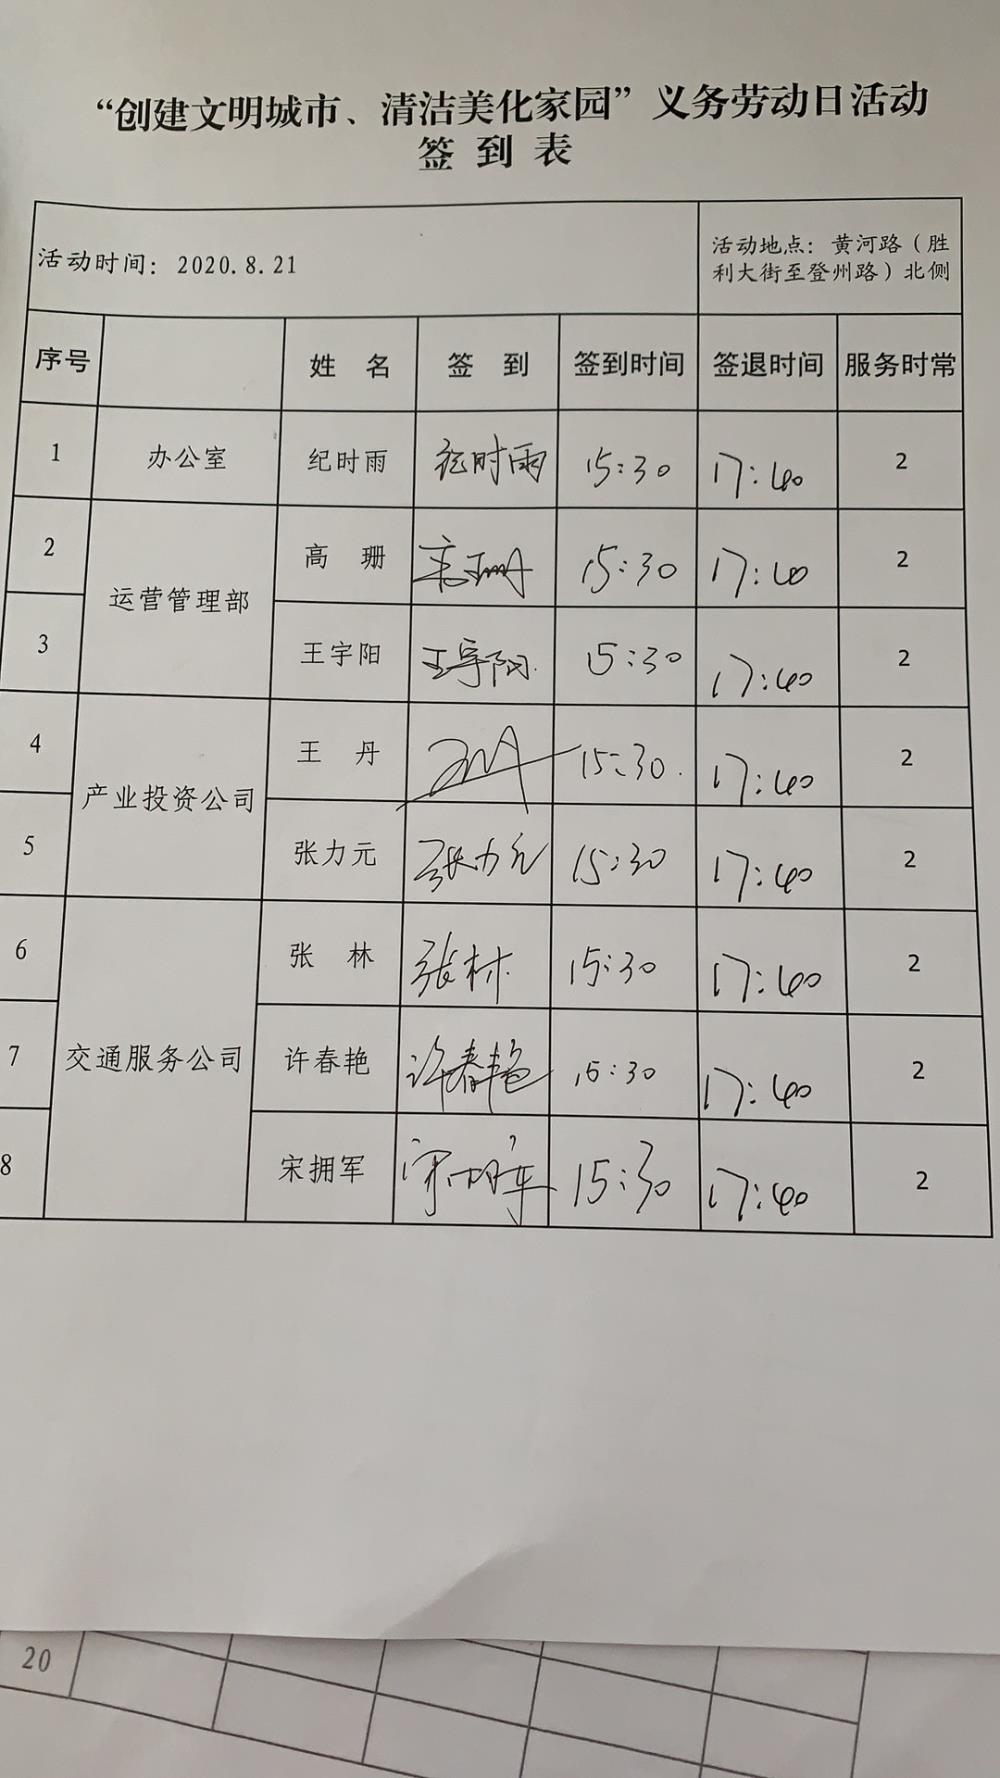 “创建文明城市、清洁美化家园”义务劳动日活动
签 到 表
活动时间：2020.8.21
活动地点：黄河路（胜
利大街至登州路）北侧
序号 姓 名 签 到 签到时间 签退时间 服务时常
1 办公室 纪时雨 纪时雨 15:30 17:40 2
2 运营管理部 高 珊 高珊 15:30 17:40 2
3 王宇阳 王宇阳 15:30 17:40 2
4 产业投资公司 王 丹 王丹 15:30 17:40 2
5 张力元 张力元 15:30 17:40 2
6 交通服务公司 张 林 张林 15:30 17:40 2
7 许春艳 许春艳 15:30 17:40 2
8 宋拥军 宋拥军 15:30 17:40 2
20